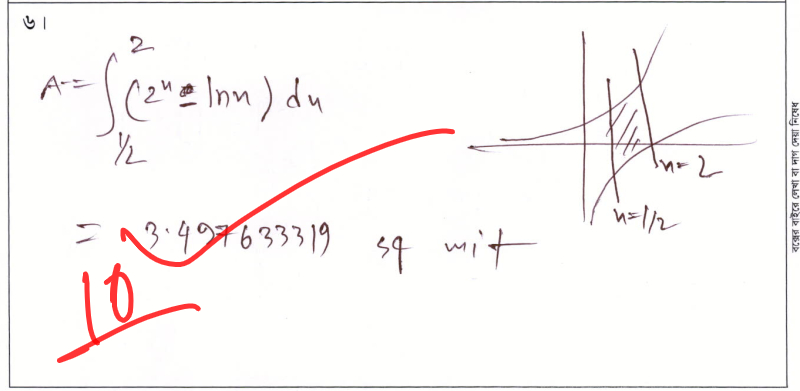 ৬।
A = ∫_{1/2}^{2} (2^x - lnx) dx
= 3.497633319 sq unit
x=2
x=1/2
10
বক্সের বাইরে লেখা বা দাগ দেয়া নিষেধ